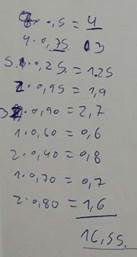 8·0,5 = 4
4·0,75 3
5·0,25 = 1,25
2·0,95 = 1,9
3·0,90 = 2,7
1·0,60 = 0,6
2·0,40 = 0,8
1·0,70 = 0,7
2·0,80 = 1,6
16,55